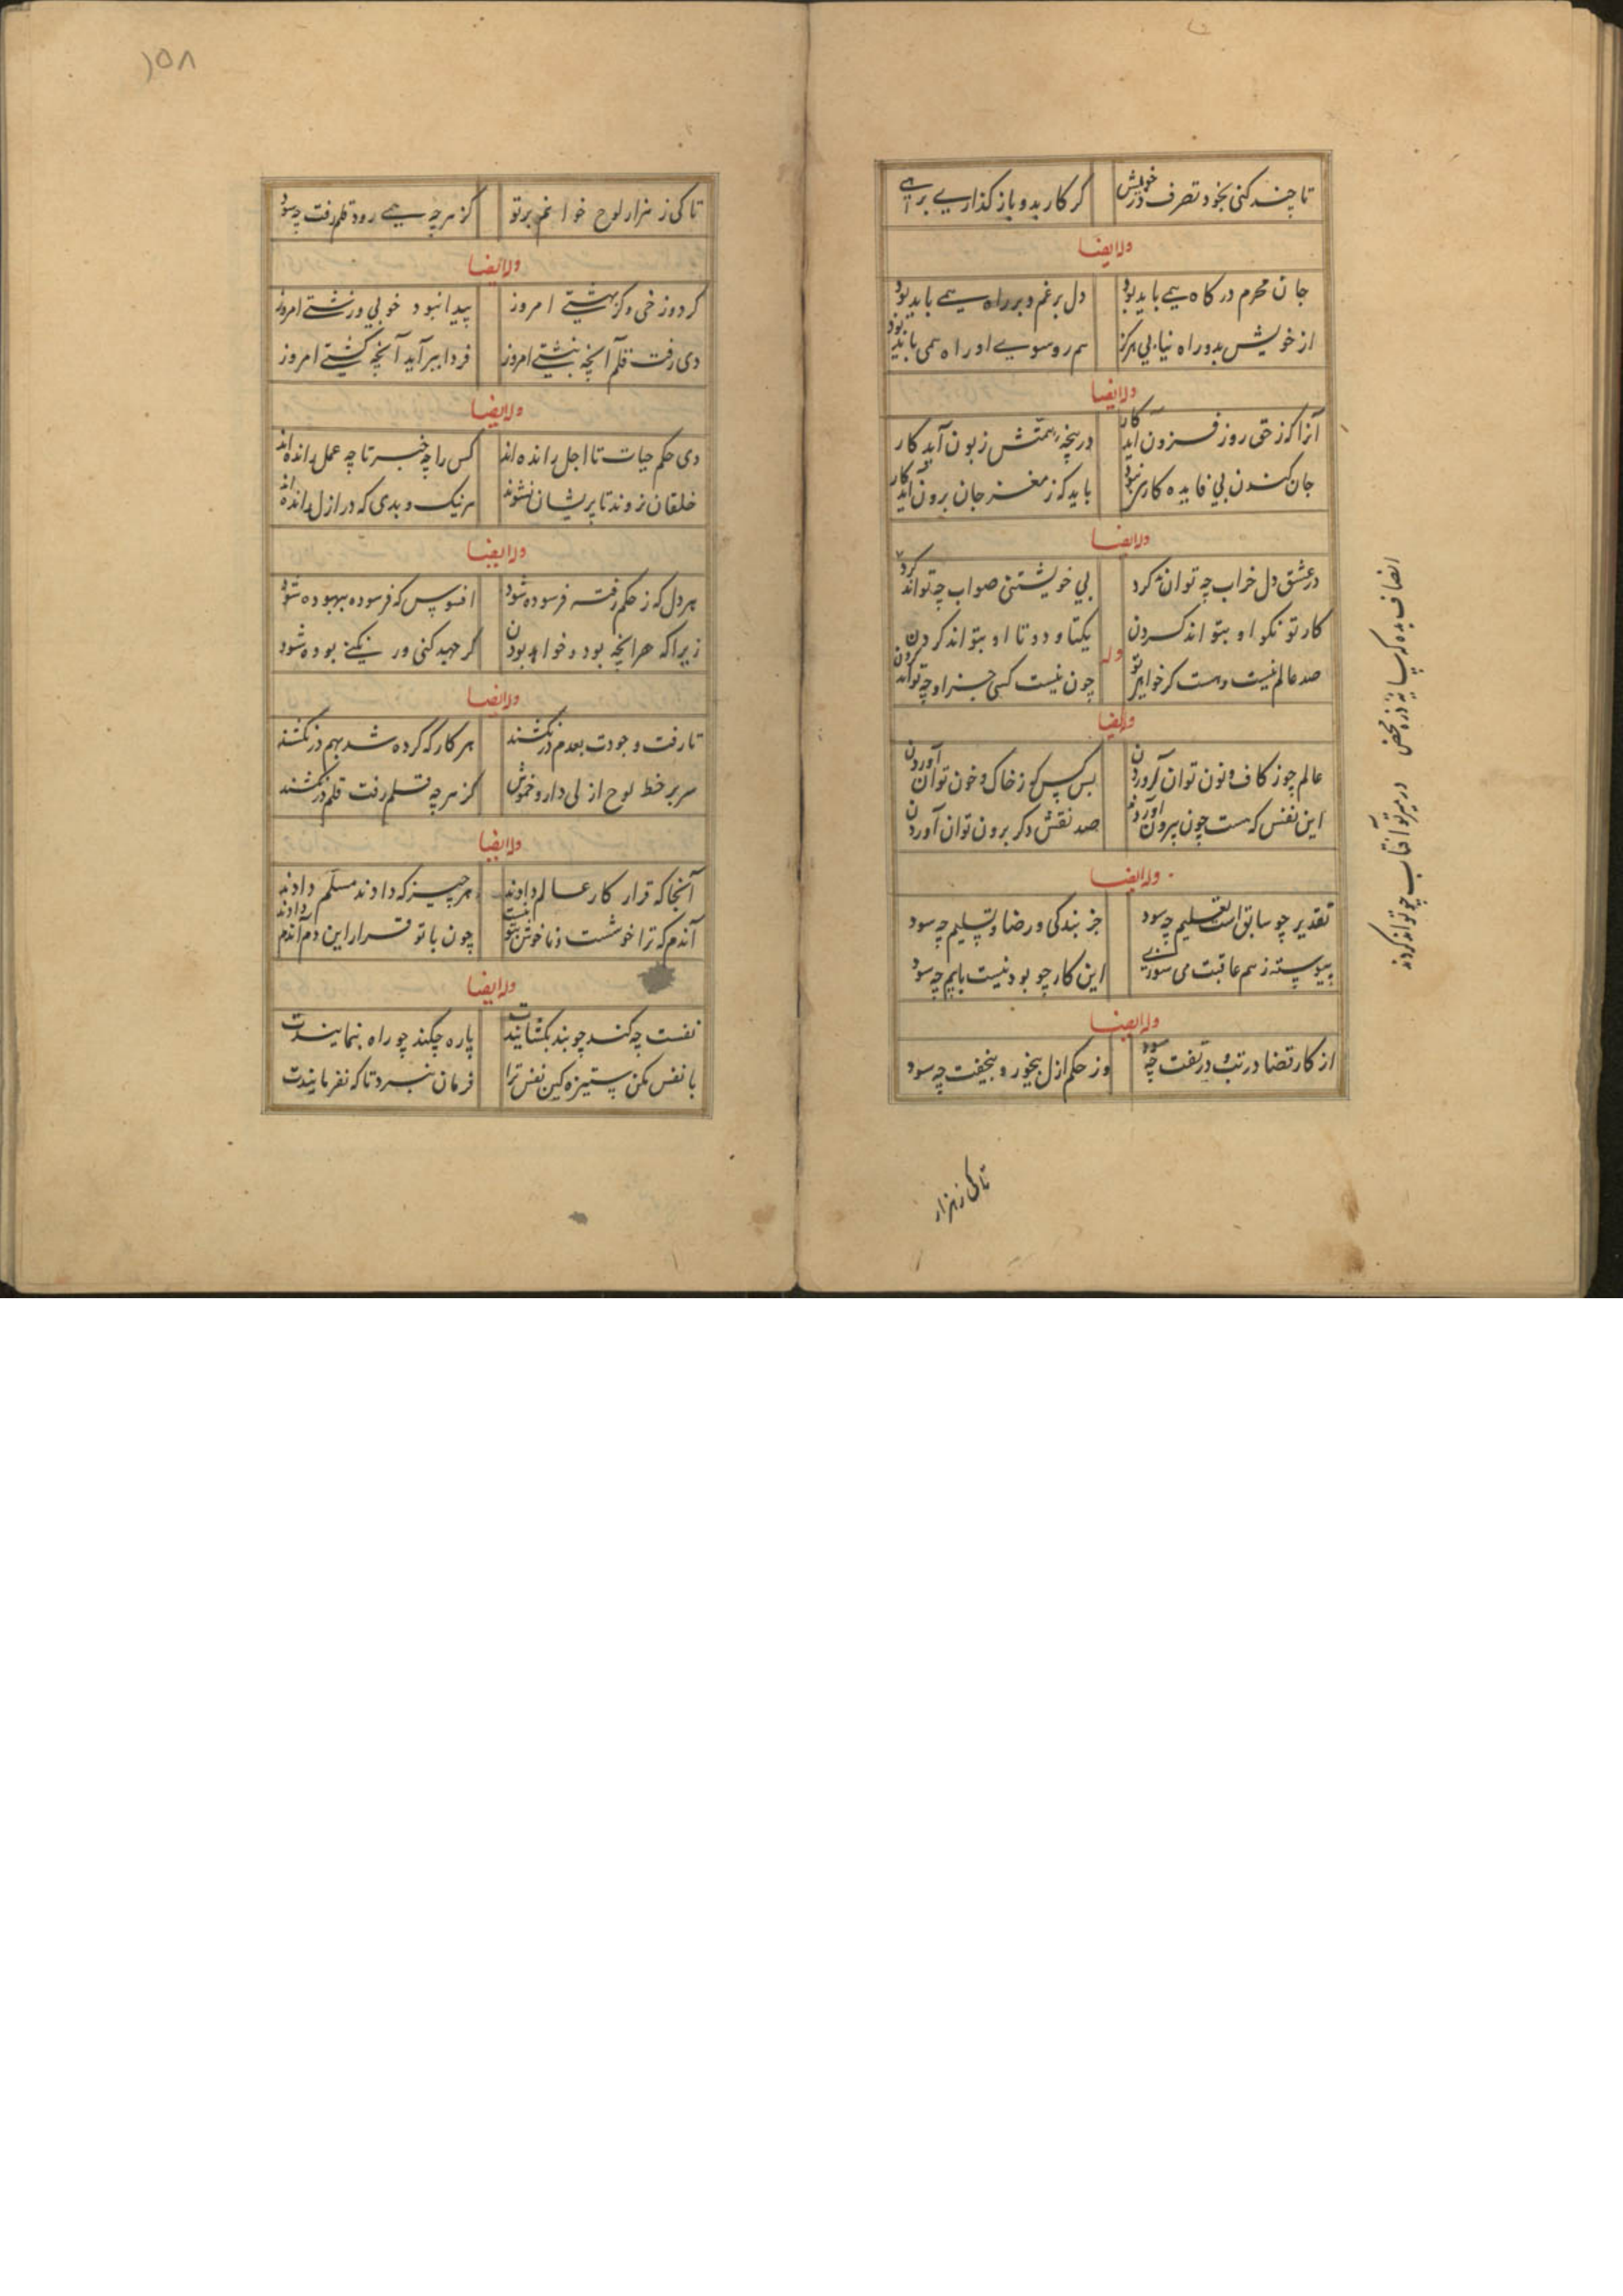 تا چند کنی بخود تصرف در خویش
گر کار بدو باز گذاری برهی
وله ایضا
جان محرم درگاه همی باید بود
دل بر غم و بر راه همی باید بود
از خویش بدو راه نیابی هرگز
هم رو سوی او راه همی باید بود
وله ایضا
آنرا کز حق روز فزون آید کار
در پنجه همتش زبون آید کار
جان کندن بی فایده کاری نبود
باید که ز مغز جان برون آید کار
وله ایضا
در عشق دل خراب چه تواند کرد
بی خویشتنی صواب چه تواند کرد
انصاف بده که سایهٔ ذره محض
در پرتو آفتاب چه تواند کرد
وله
کار تو نکو او بتواند کردن
یکتا و دو تا او بتواند کردن
صد عالم نیست هست گر خواهد
چون نیست کسی جز او چه تواند کردن
وله ایضا
عالم چو ز کاف و نون توان آوردن
بس کس که ز خاک و خون توان آوردن
این نفس که هست چون برون آورد
صد نقش دگر برون توان آوردن
وله ایضا
تقدیر چو سابق است تعلیم چه سود
جز بندگی و رضا و تسلیم چه سود
پیوسته ز هم عاقبت می سوزی
این کار چو بودنیست با بیم چه سود
وله ایضا
از کار قضا در تب و در تفت چه سود
وز حکم ازل بیخور و بیخفت چه سود
تا کی ز هزار
۱۵۸
تا کی ز هزار لوح خوانم بر تو
کز هرچه همی رود قلم رفت چه سود
وله ایضا
گر دوزخی و گر بهشتی امروز
پیدا نبود خوبی و زشتی امروز
دی رفت قلم آنچه نبشتی امروز
فردا ببر آید آنچه کشتی امروز
وله ایضا
دی حکم حیات تا اجل رانده اند
کس را چه خبر تا چه عمل رانده اند
خلقان نروند تا پریشان نشوند
هر نیک و بدی که در ازل رانده اند
وله ایضا
هر دل که ز حکم رفته فرسوده شود
افسوس که فرسوده بیهوده شود
زیرا که هر آنچه بود و خواهد بودن
گر جهد کنی ور نکنی بوده شود
وله ایضا
تا رفت وجودت بعدم در نکشند
هر کار که کرده شد بهم در نکشند
سر بر خط لوح ازلی دار و خموش
کز هرچه قلم رفت قلم در نکشند
وله ایضا
آنجا که قرار کار عالم دادند
هر چیز که دادند مسلم دادند
آندم که ترا خوشست و ناخوش بتو نیست
چون با تو قرار این دم آندم دادند
وله ایضا
نفست چه کند چو بند بگشایندت
پاره چکند چو راه بنمایندت
با نفس مکن ستیزه کین نفس ترا
فرمان نبرد تا که نفرمایندت